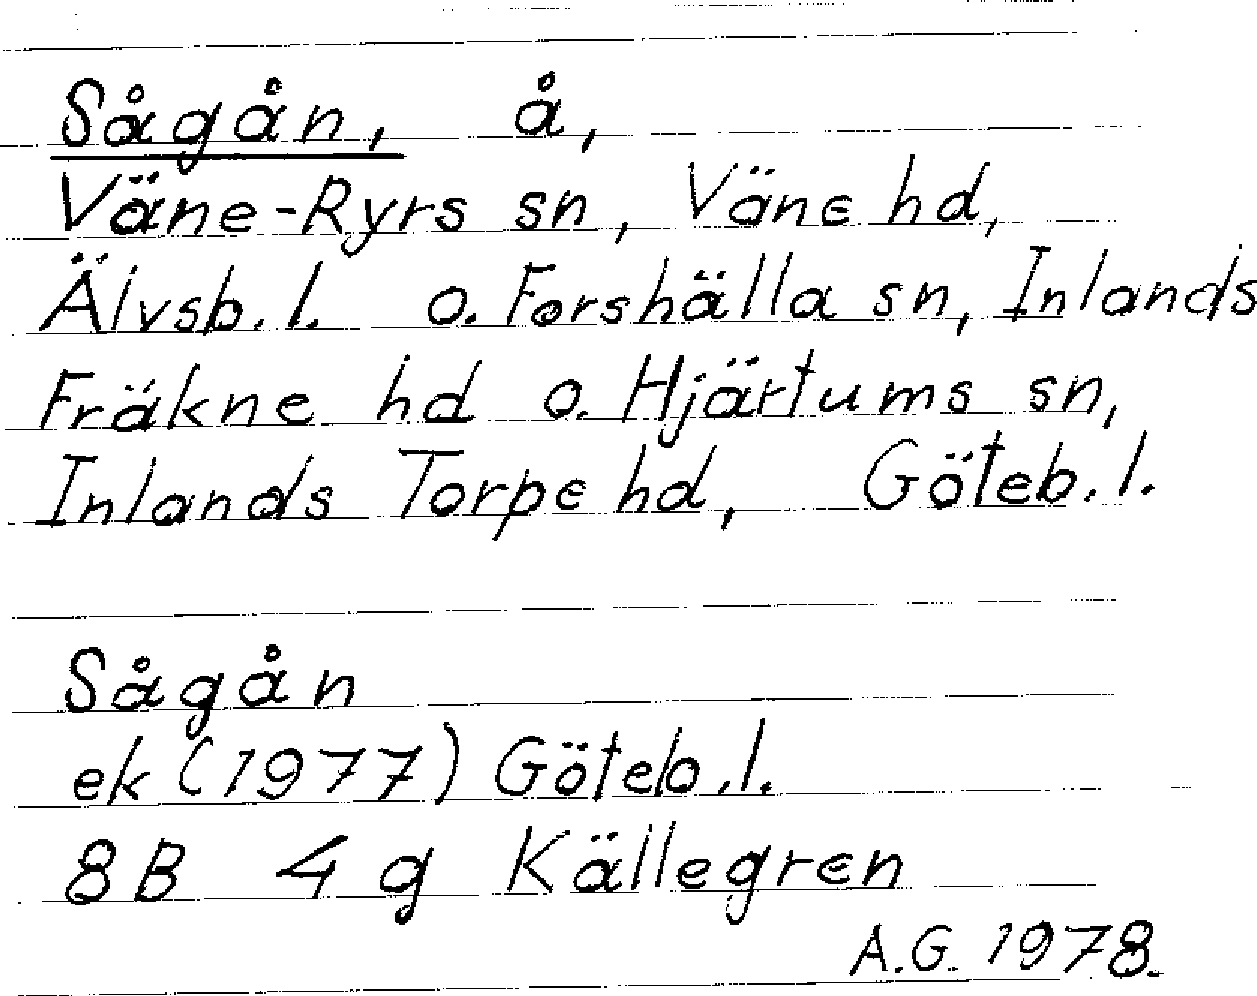 Sågån, å,
Väne-Ryrs sn, Väne hd,
Älvsb. l. o. Forshälla sn, Inlands
Fräkne hd o. Hjärtums sn,
Inlands Torpe hd, Göteb. l.
Sågån
ek (1977) Göteb. l.
8B 4g Källegren
A.G. 1978.